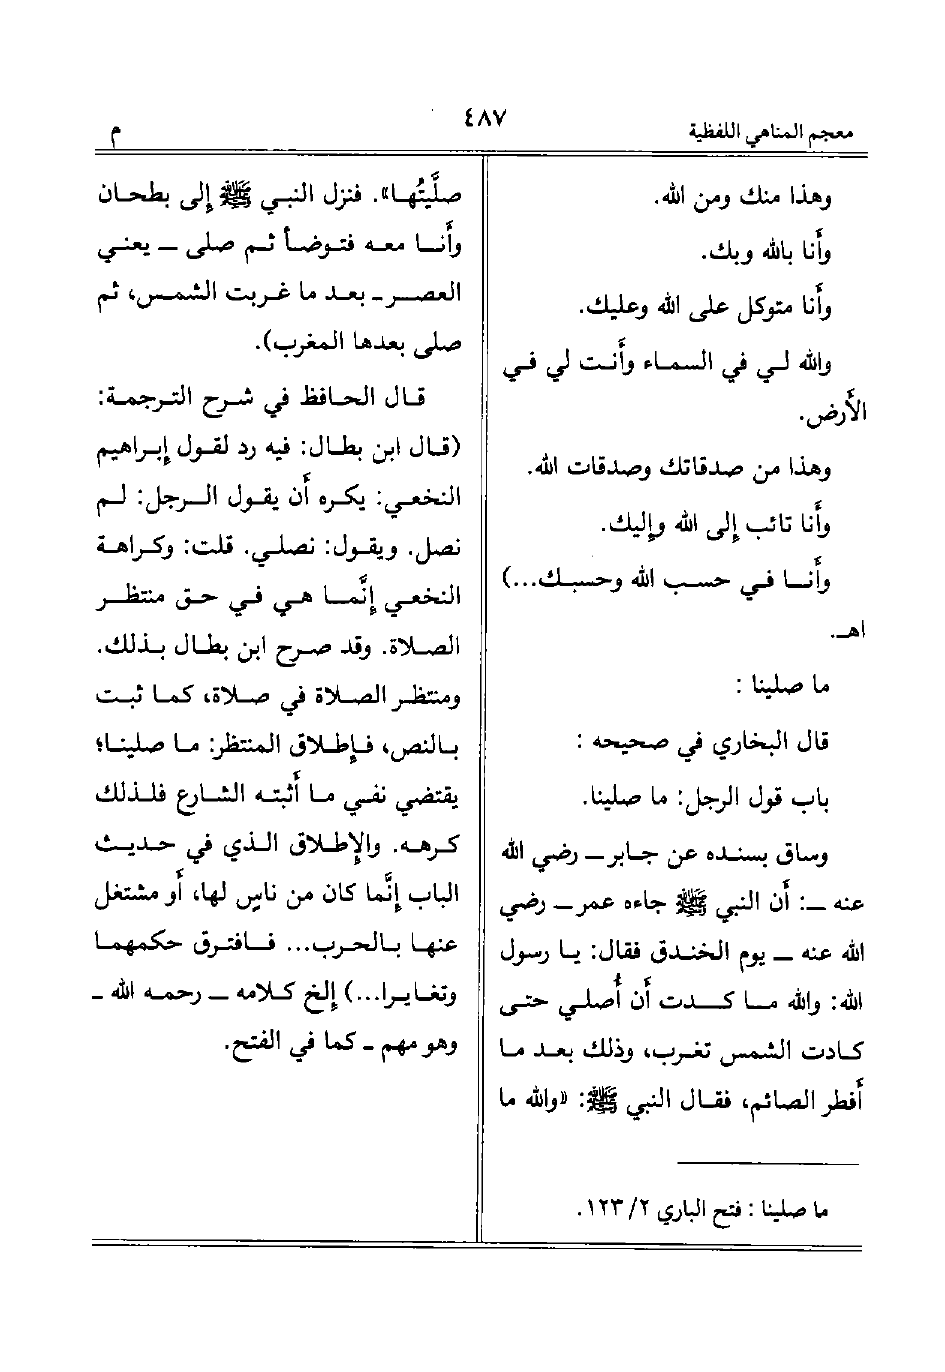 معجم المناهي اللفظية
٤٨٧
م
وهذا منك ومن الله.
وأنا بالله وبك.
وأنا متوكل على الله وعليك.
والله لي في السماء وأنت لي في
الأرض.
وهذا من صدقاتك وصدقات الله.
وأنا تائب إلى الله وإليك.
وأنا في حسب الله وحسبك...)
اهـ.
ما صلينا :
قال البخاري في صحيحه :
باب قول الرجل: ما صلينا.
وساق بسنده عن جابر ـ رضي الله
عنه ـ: أن النبي ﷺ جاءه عمر ـ رضي
الله عنه ـ يوم الخندق فقال: يا رسول
الله: والله ما كدت أن أُصلي حتى
كادت الشمس تغرب، وذلك بعد ما
أفطر الصائم، فقال النبي ﷺ: «والله ما
صلَّيتُها». فنزل النبي ﷺ إلى بطحان
وأنا معه فتوضأ ثم صلى ـ يعني
العصر ـ بعد ما غربت الشمس، ثم
صلى بعدها المغرب).
قال الحافظ في شرح الترجمة:
(قال ابن بطال: فيه رد لقول إبراهيم
النخعي: يكره أن يقول الرجل: لم
نصل. ويقول: نصلي. قلت: وكراهة
النخعي إنَّما هي في حق منتظر
الصلاة. وقد صرح ابن بطال بذلك.
ومنتظر الصلاة في صلاة، كما ثبت
بالنص، فإطلاق المنتظر: ما صلينا؛
يقتضي نفي ما أثبته الشارع فلذلك
كرهه. والإطلاق الذي في حديث
الباب إنَّما كان من ناسٍ لها، أو مشتغل
عنها بالحرب... فافترق حكمهما
وتغايرا...) إلخ كلامه ـ رحمه الله ـ
وهو مهم ـ كما في الفتح.
ما صلينا : فتح الباري ٢/ ١٢٣.